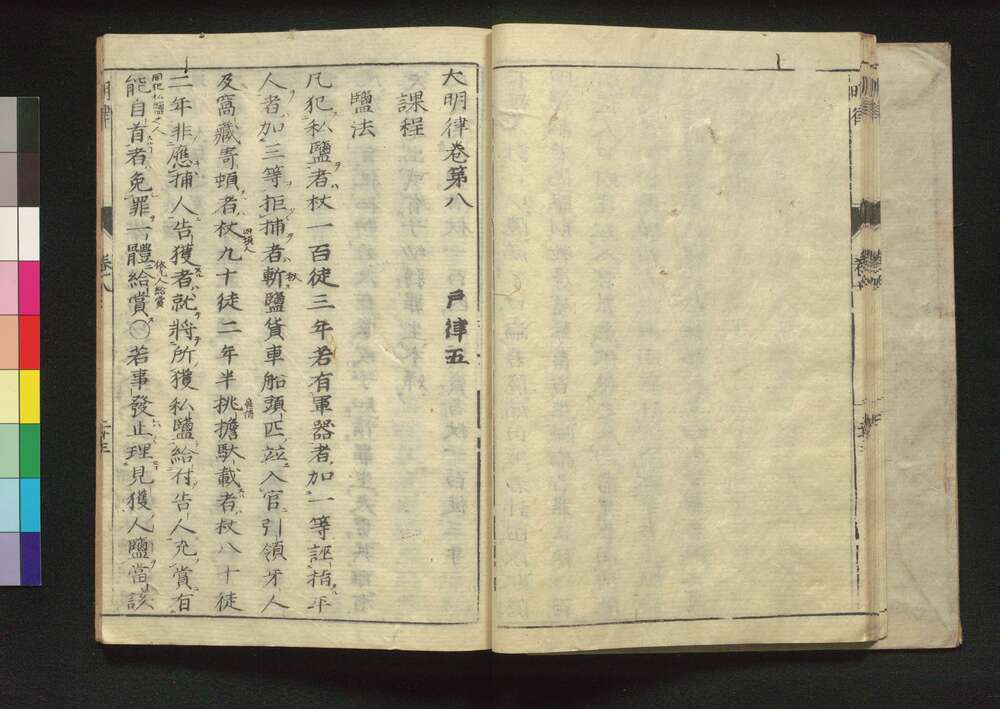 大明律卷第八　戸律五
課程
鹽法
凡犯私鹽者杖一百徒三年若有軍器者加一等誣指平
人者加三等拒捕者斬鹽貨車船頭匹並入官引領牙人
及窩藏寄頓者杖九十徒二年半挑擔馱載者杖八十徒
二年非應捕人告獲者就將所獲私鹽給付告人充賞有
能自首者免罪一體給賞〇若事發止理見獲人鹽當該
明律
卷八